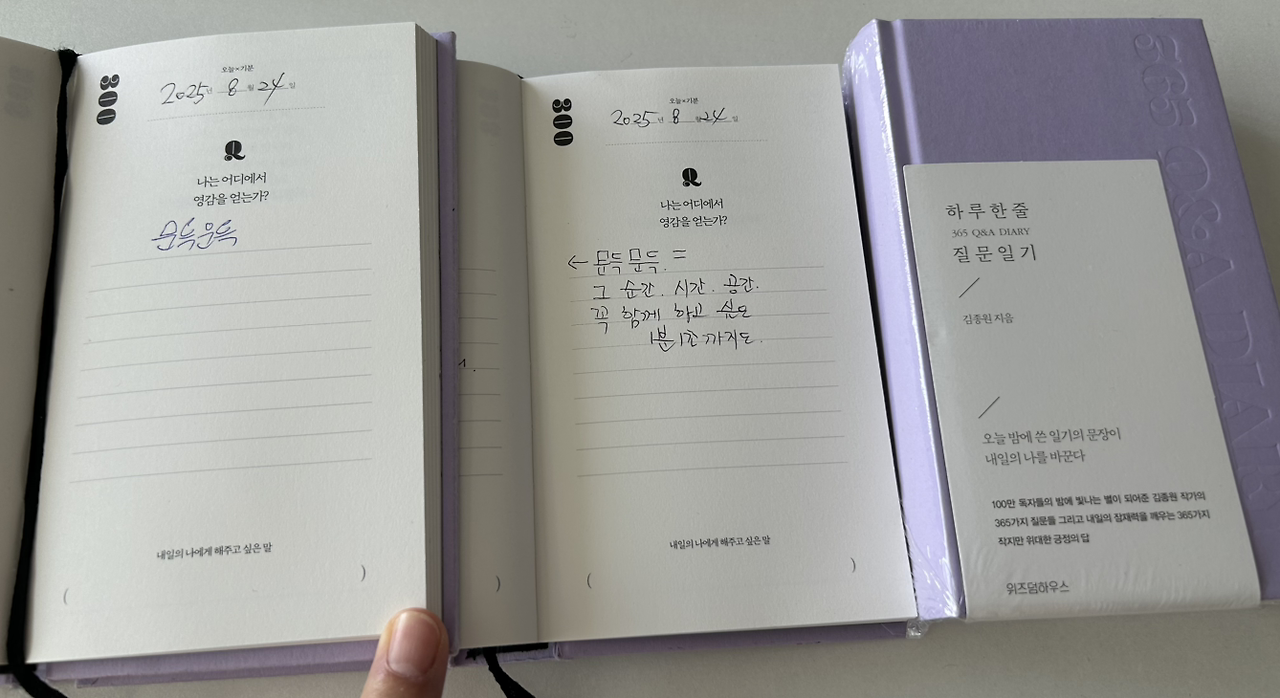 300
오늘×기분
2025년 8월 24일
Q
나는 어디에서
영감을 얻는가?
문득문득
내일의 나에게 해주고 싶은 말
( )
)
300
오늘×기분
2025년 8월 24일
Q
나는 어디에서
영감을 얻는가?
← 문득 문득. =
그 순간. 시간. 공간.
꼭 함께 하고 싶은
1분 1초 까지도.
내일의 나에게 해주고 싶은 말
( )
365 Q&A DIARY
하루한줄
365 Q&A DIARY
질문일기
김종원 지음
오늘 밤에 쓴 일기의 문장이
내일의 나를 바꾼다
100만 독자들의 밤에 빛나는 별이 되어준 김종원 작가의
365가지 질문들 그리고 내일의 잠재력을 깨우는 365가지
작지만 위대한 긍정의 답
위즈덤하우스